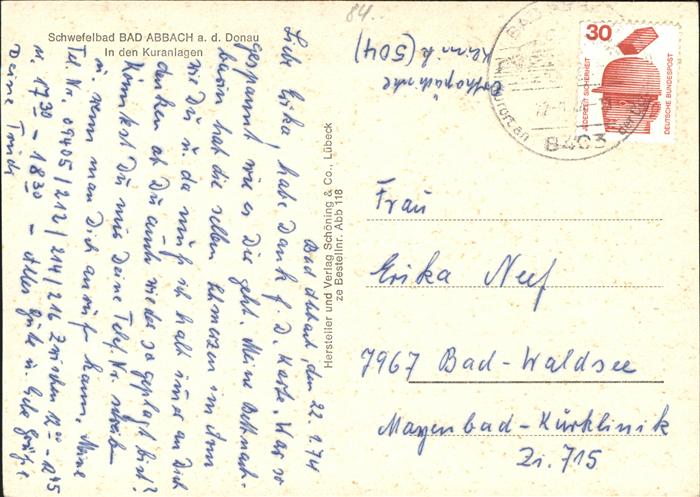 Schwefelbad BAD ABBACH a. d. Donau
In den Kuranlagen
84..
Orthopädische
Klinik (504)
Bad Abbach, den 22.1.74
Liebe Erika! habe Dank f. D. Karte. War so
gespannt wie es Dir geht. Meine Bettnach-
barin hat die selben Schmerzen im Arm
wie Du u. da muß ich halt immer an Dich
denken ob Du auch wieder so geplagt bist?
Könntest Du mir Deine Telef. Nr. schreiben
u. wenn man Dich anrufen kann. Meine
Tel. Nr. 09405/212/214/216 Zwischen 12°° - 12 45
u. 17 30 - 18 30 - Alles Gute u. liebe Grüße
Deine Trudi
Hersteller und Verlag Schöning & Co., Lübeck
ze Bestellnr. Abb 118
BAD ABBACH
8403
Kurort an der Donau
30
JEDERZEIT SICHERHEIT
DEUTSCHE BUNDESPOST
Frau
Erika Neef
7967 Bad-Waldsee
Mayenbad-Kurklinik
Zi. 715